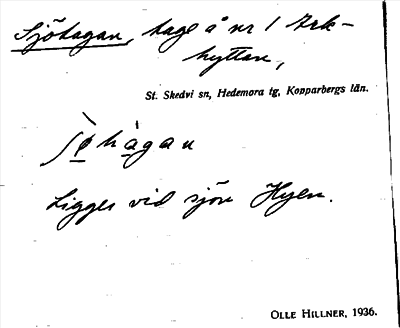 Sjöhagan, hage å nr 1 Ark-
hyttan,
St. Skedvi sn, Hedemora tg, Kopparbergs län.
ʃø̀hàgan
Ligger vid sjön Hyen.
OLLE HILLNER, 1936.